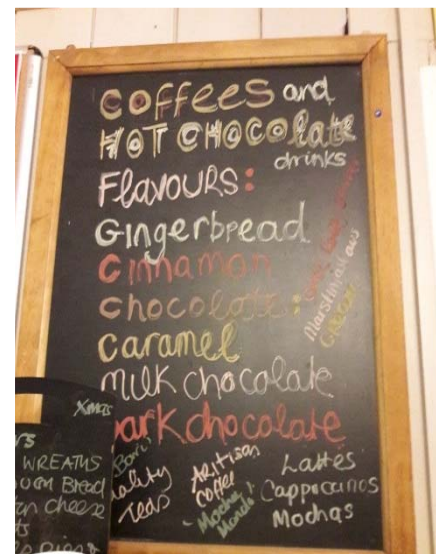 COFFEES and
HOT CHOCOLate
drinks
FLavOURS:
Gingerbread
Cinnamon
chocolate:
caramel
milk chocolate
Dark chocolate
Marshmallow
Cream
Quality
Teas
Artisan
Coffee
Mocha
Lattés
Cappuccinos
Mochas
Xmas
WREATHS
Bread
Cheese